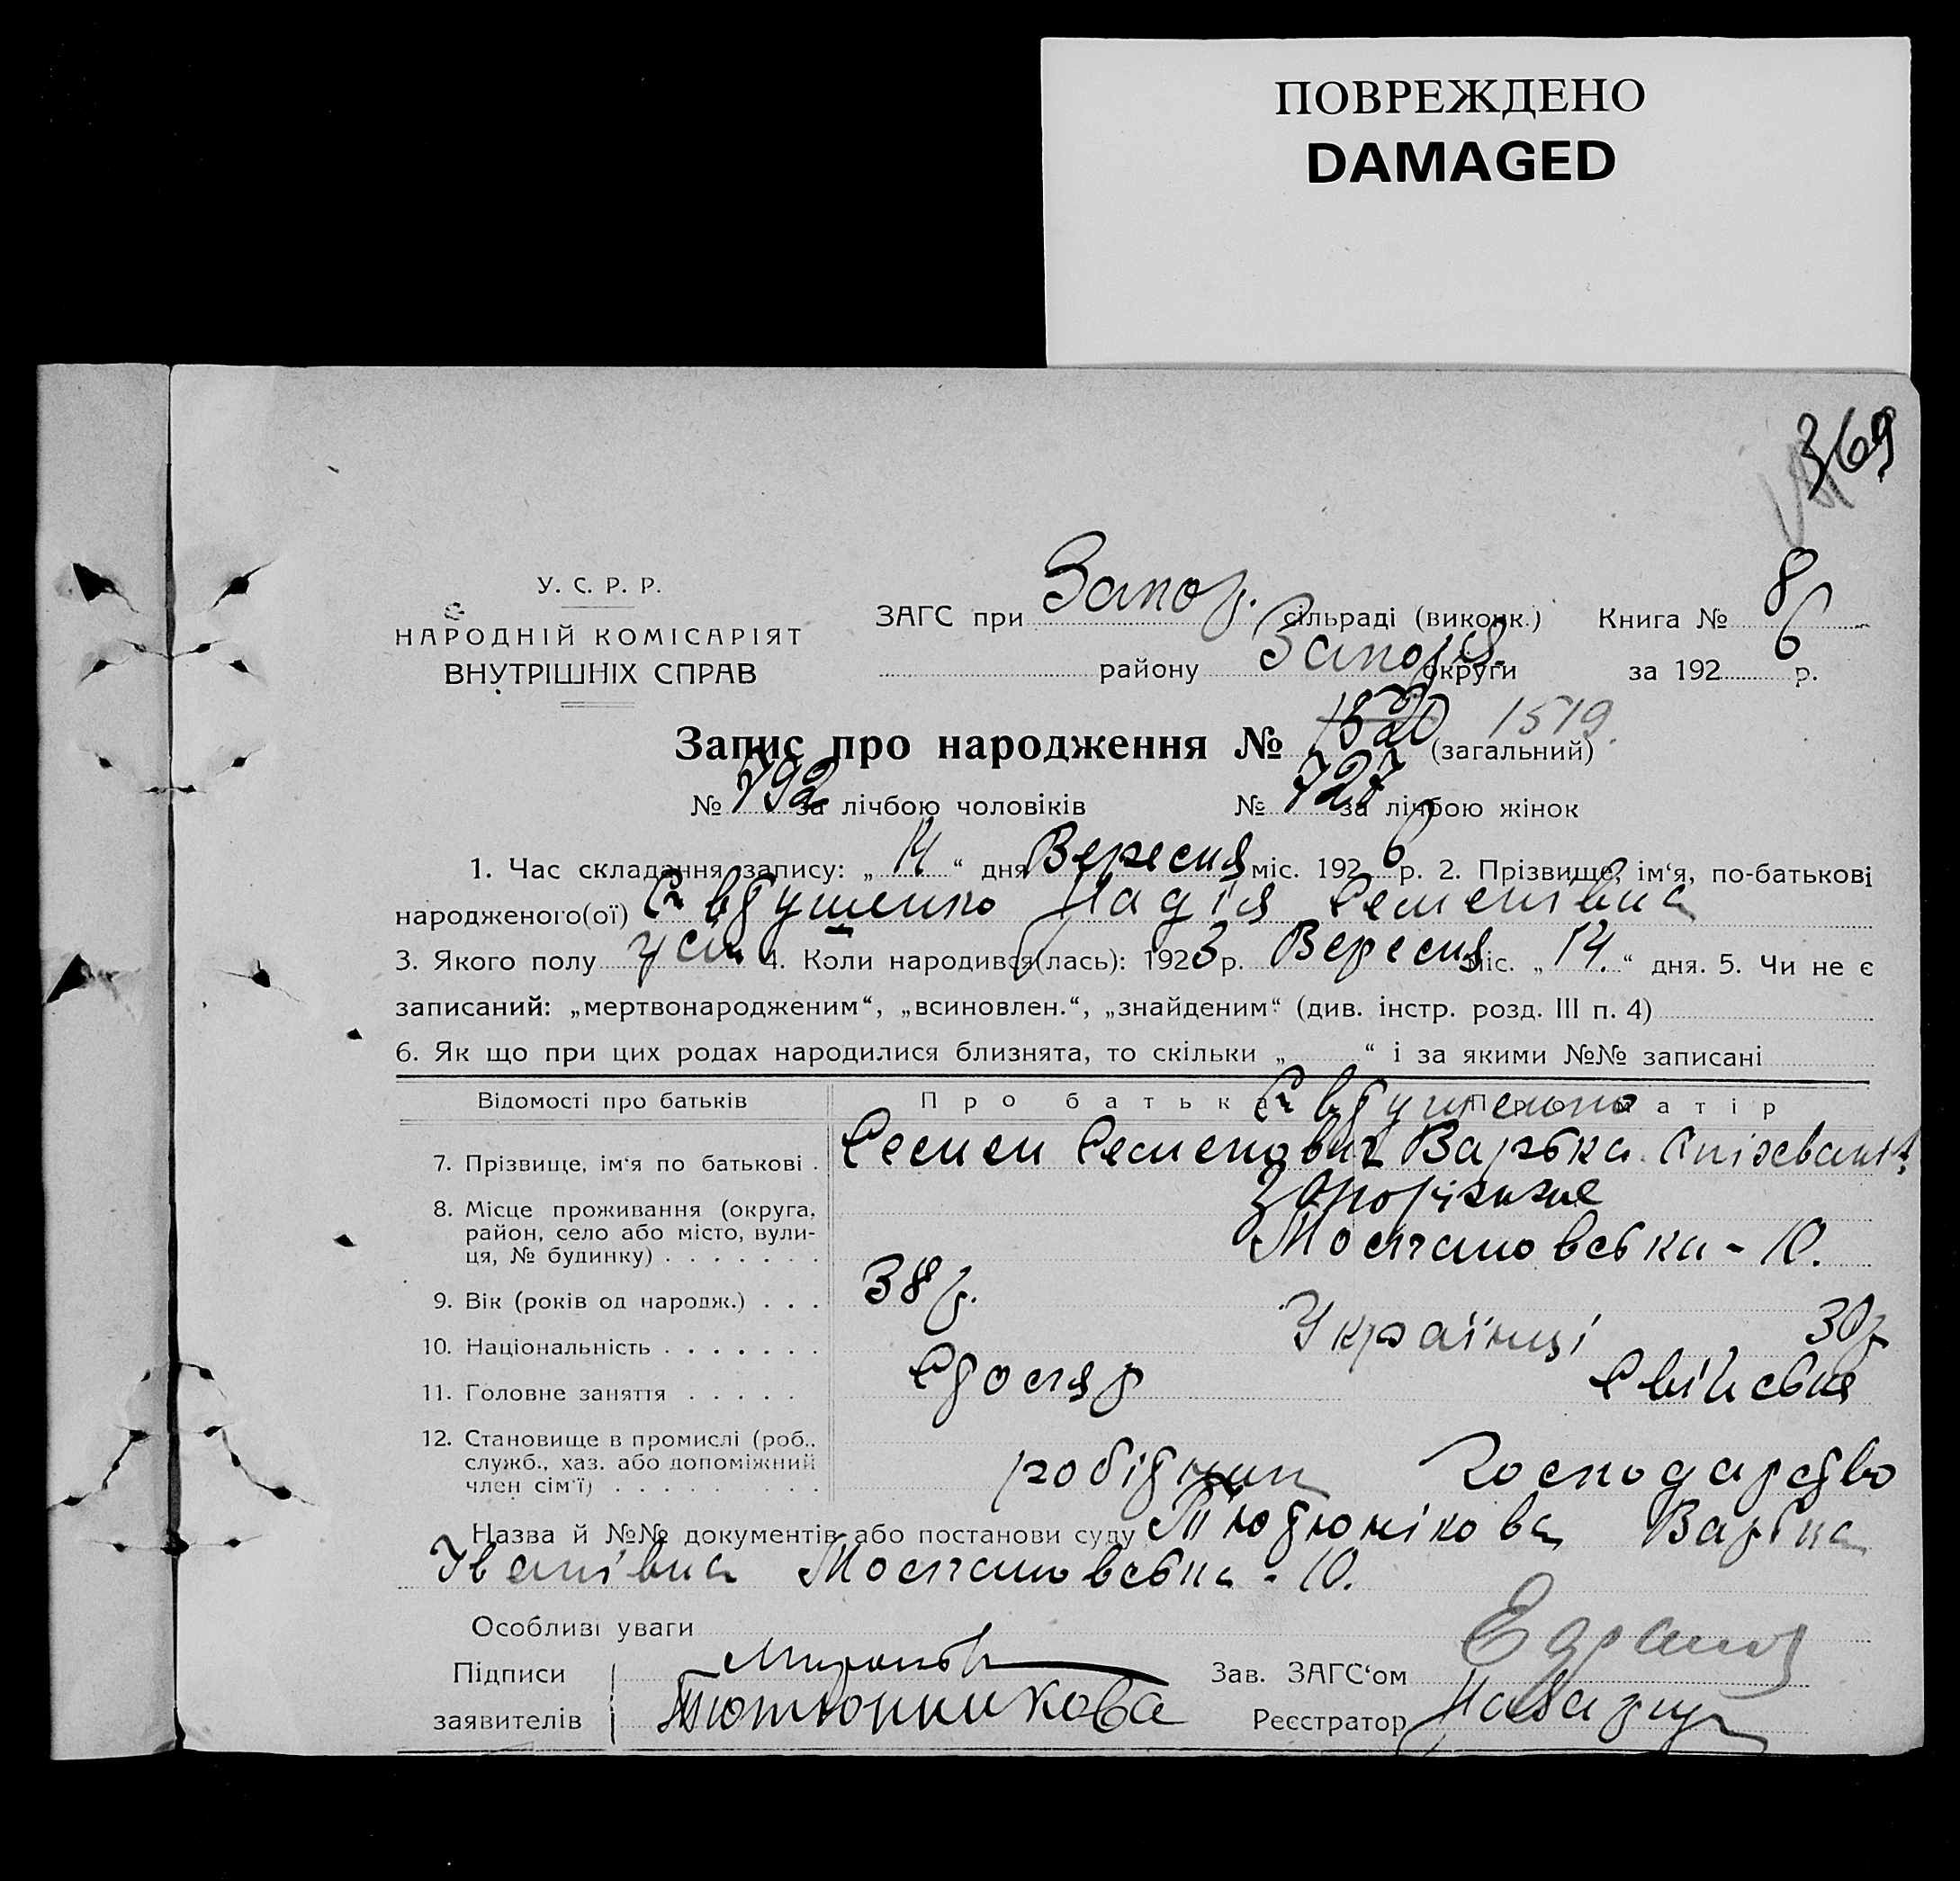 ПОВРЕЖДЕНО
DAMAGED
369
У. С. Р. Р.
НАРОДНІЙ КОМІСАРІЯТ
ВНУТРІШНІХ СПРАВ
ЗАГС при Запор. сільраді (виконк.) Книга № 8
району Запоріз. округи за 1926 р.
Запис про народження № 1520 1519 (загальний)
№ 792 за лічбою чоловіків № 727 за лічбою жінок
1. Час складання запису: „14“ дня Вересня міс. 1926 р. 2. Прізвище, ім‘я, по-батькові
народженого(ої) Євтушенко Надія Семенівна
3. Якого полу жін 4. Коли народився(лась): 1923 р. Вересня міс. „14.“ дня. 5. Чи не є
записаний: „мертвонародженим“, „всиновлен.“, „знайденим“ (див. інстр. розд. III п. 4)
6. Як що при цих родах народилися близнята, то скільки „ “ і за якими №№ записані
Відомості про батьків Про батька Про матір
Євтушенко
7. Прізвище, ім‘я по батькові . Семен Семенович Варька
8. Місце проживання (округа, район, село або місто, вулиця, № будинку) Запоріжже
Мостановська - 10.
9. Вік (років од народж.) . . . 38 р. 30 р
10. Національність Українці
11. Головне заняття Столяр Свійське
12. Становище в промислі (роб., служб., хаз. або допоміжний член сім‘ї) робітник господарство
Назва й №№ документів або постанови суду Тютюнікова Варька
Іванівна Мостановська - 10.
Особливі уваги
Підписи Зав. ЗАГС‘ом
заявителів Тютюнникова Реєстратор